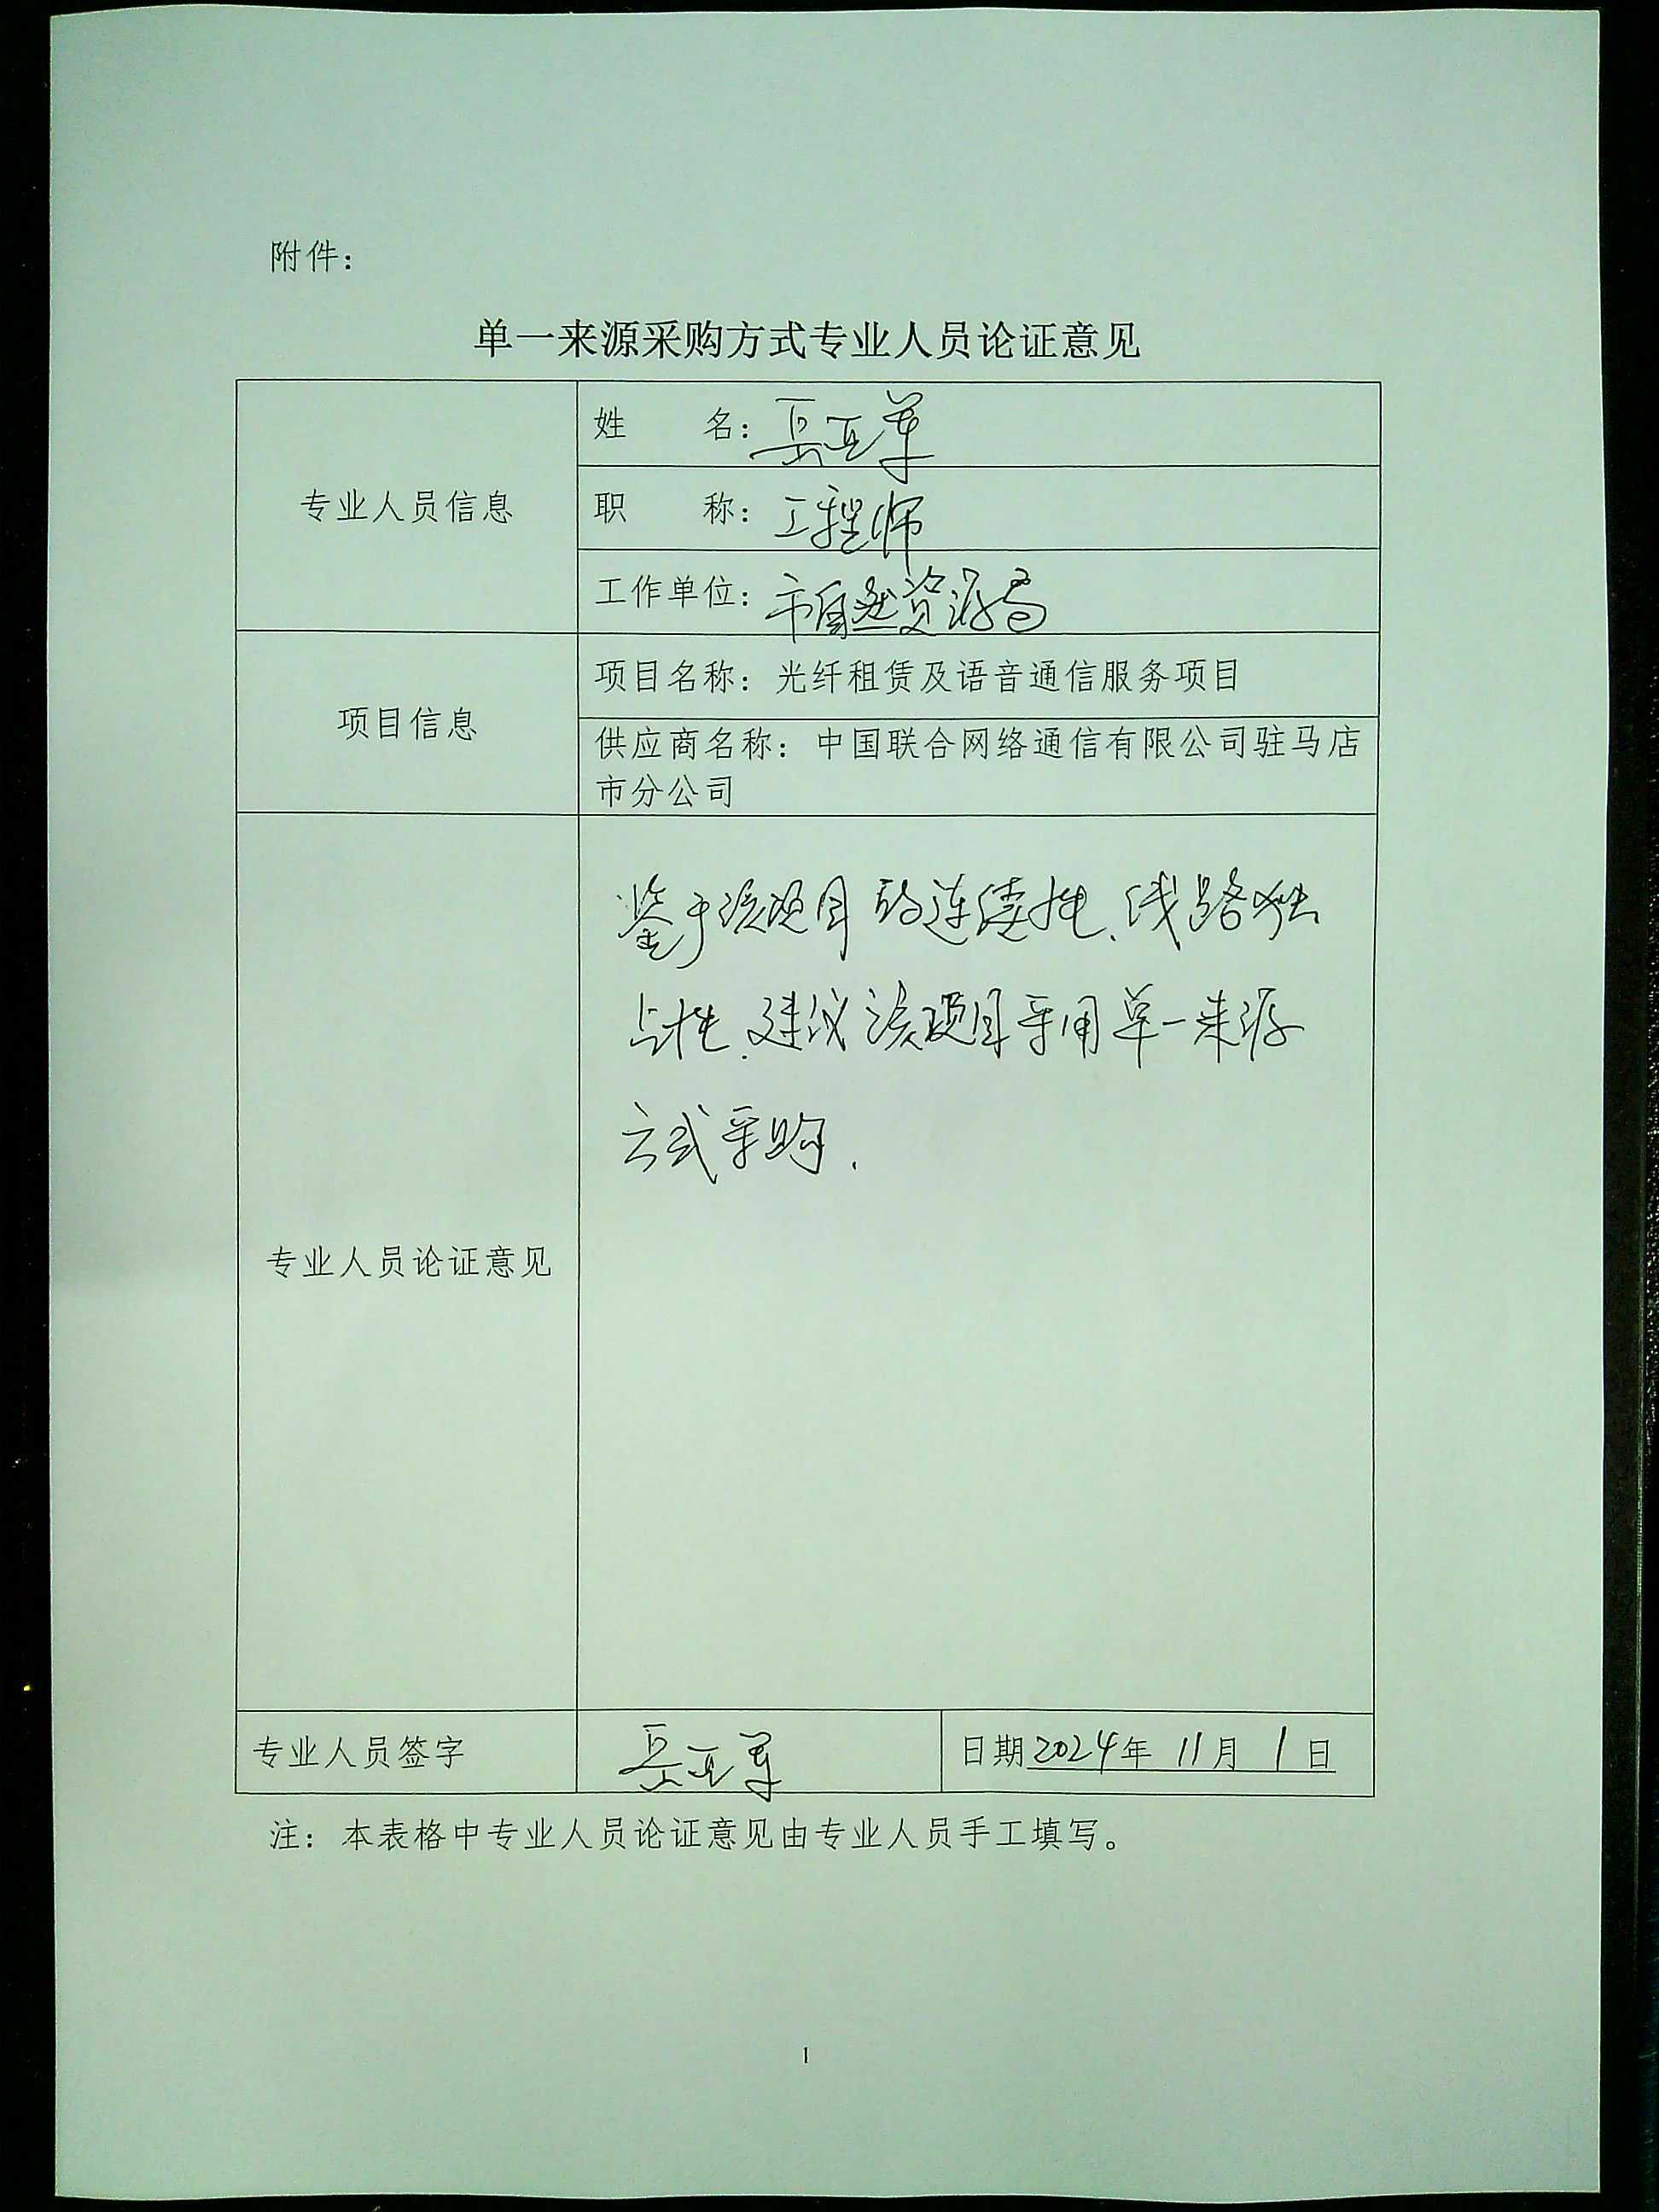 附件：
单一来源采购方式专业人员论证意见
专业人员信息
姓　　名：岳正军
职　　称：工程师
工作单位：市自然资源局
项目信息
项目名称：光纤租赁及语音通信服务项目
供应商名称：中国联合网络通信有限公司驻马店
市分公司
专业人员论证意见
鉴于该项目的连续性、线路独
占性、建议该项目采用单一来源
方式采购.
专业人员签字
岳正军
日期2024年 11月 1日
注：本表格中专业人员论证意见由专业人员手工填写。
1